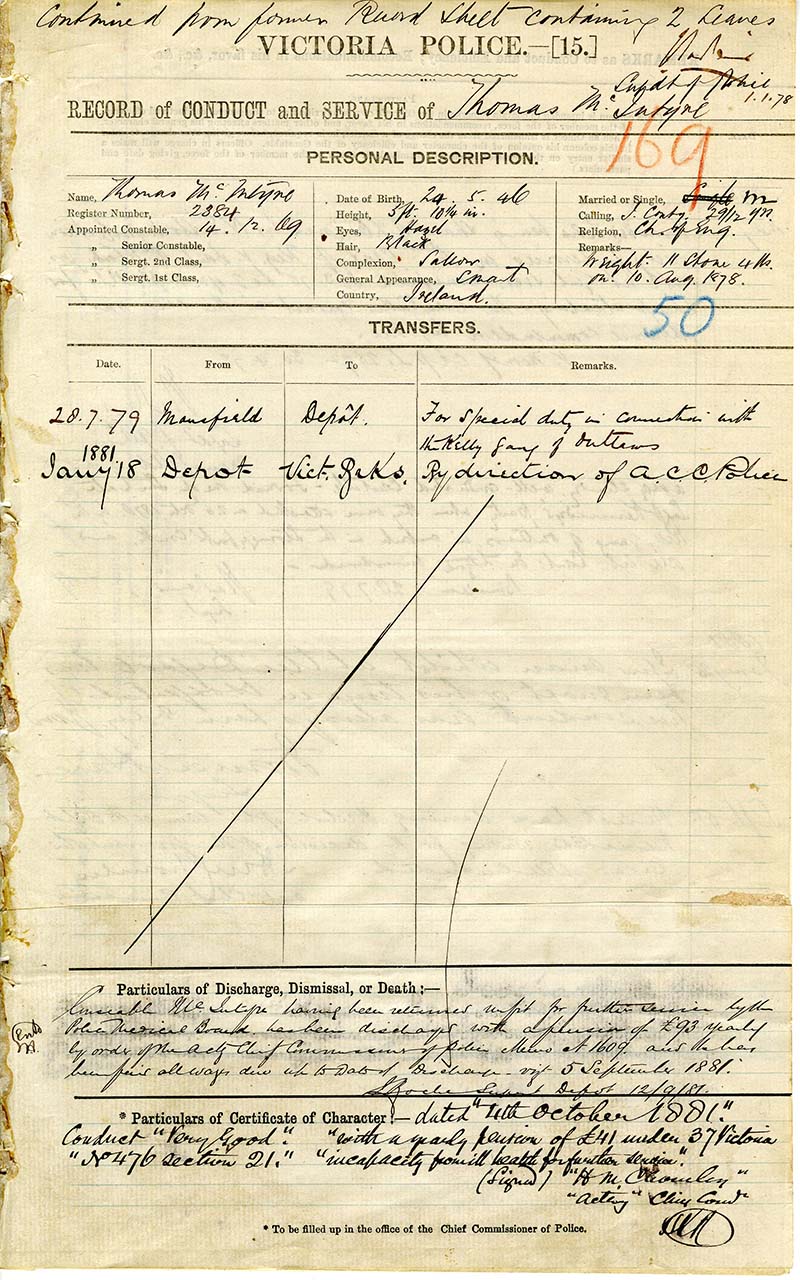 Continued from former Record Sheet containing 2 Leaves
VICTORIA POLICE.—[15.]
Supdt of Police
1.1.78
RECORD of CONDUCT and SERVICE of Thomas McIntyre
169
PERSONAL DESCRIPTION.
Name, Thomas McIntyre
Register Number, 2384
Appointed Constable, 14. 12. 69
„ Senior Constable,
„ Sergt. 2nd Class,
„ Sergt. 1st Class,
Date of Birth, 24. 5. 46
Height, 5ft. 10¼ in.
Eyes, Hazel
Hair, Black
Complexion, Sallow
General Appearance, Smart
Country, Ireland.
Married or Single, Single M
Calling, I. Conty. 2 9/12 yrs.
Religion, Ch. of Eng.
Remarks—
Weight 11 Stone 4 lbs.
on 10. Aug. 1878.
50
TRANSFERS.
Date. From To Remarks.
28.7.79 Mansfield Depôt. For Special duty in connection with
the Kelly Gang of Outlaws
1881
Jany 18 Depot Vict. Bks. By direction of A.C.C. Police
Particulars of Discharge, Dismissal, or Death:—
Constable McIntyre having been returned unfit for further service by the
Police Medical Board has been discharged with a pension of £93 yearly
by order of the Actg Chief Commissioner of Police Memo at 1609 and he has
been paid all wages due up to Date of Discharge - vizt 5 September 1881.
Supent Depot 12/9/81.
* Particulars of Certificate of Character:— dated "4th October 1881."
Conduct "Very Good". "with a yearly pension of £41 under 37 Victoria
"No 476 section 21." "incapacity from ill health for further service".
(Signed) "H. M. Chomley"
"Acting" Chief Comr
* To be filled up in the office of the Chief Commissioner of Police.